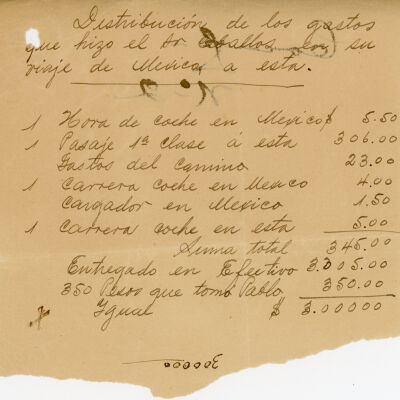 Distribución de los gastos
que hizo el Sr Ceballos en su
viaje de Mexico a esta.
1 Hora de coche en Mexico $ 5.50
1 Pasaje 1ª Clase á esta 306.00
Gastos del Camino 23.00
1 Carrera coche en Mexico 4.00
Cargador en Mexico 1.50
1 Carrera coche en esta 5.00
Suma total 345.00
Entregado en Efectivo 3.005.00
350 Pesos que tomó Pablo 350.00
Igual $ 3.00000